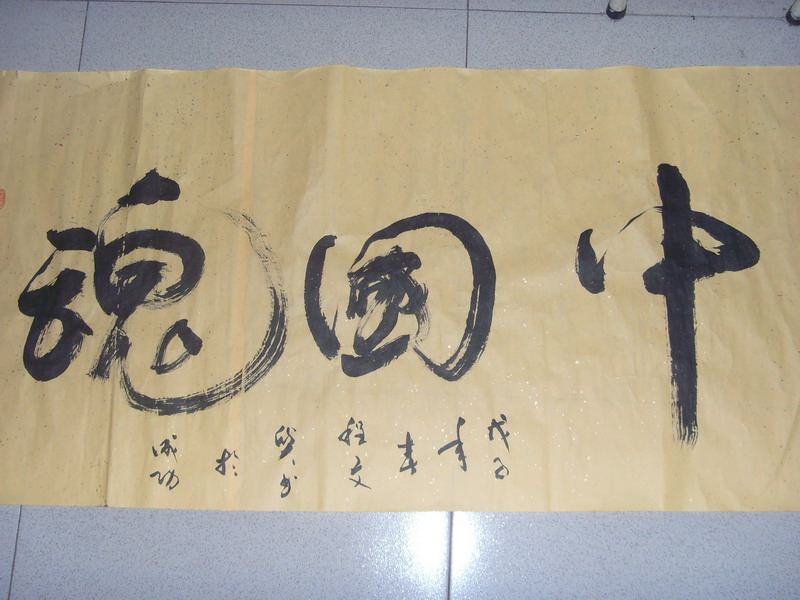 中國魂
戊子年春程文书於成功